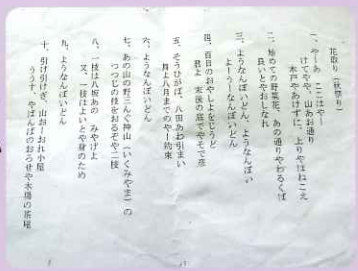 花取り(秋祭り)
一、やーあ ここはやー
けてやや、山あお通り
木戸やあけずに、上りやはねこえ
二、始めての野菜花、あの通りやわるくば
良いとやおしなれ
三、ようなんぼいどん、ようなんぼい
よーうーなんぼいどん
四、百日のおやしよをじうど
君よ 末後の庭で遊そで恋
五、そうひがば、八田あわ引まい
月よ八月までのやー約束
六、ようなんぼいどん
七、あの山の野三んぐ神山(いくみやま)の
つつじの枝をおるぞや二枝
八、一枝は八坂あの みやげよ
又、一枝はよいとや身のため
九、ようなんぼいどん
十、引け引けぎ、山田ーお山小屋
ううす、やばんばのおろせや木場の茶屋